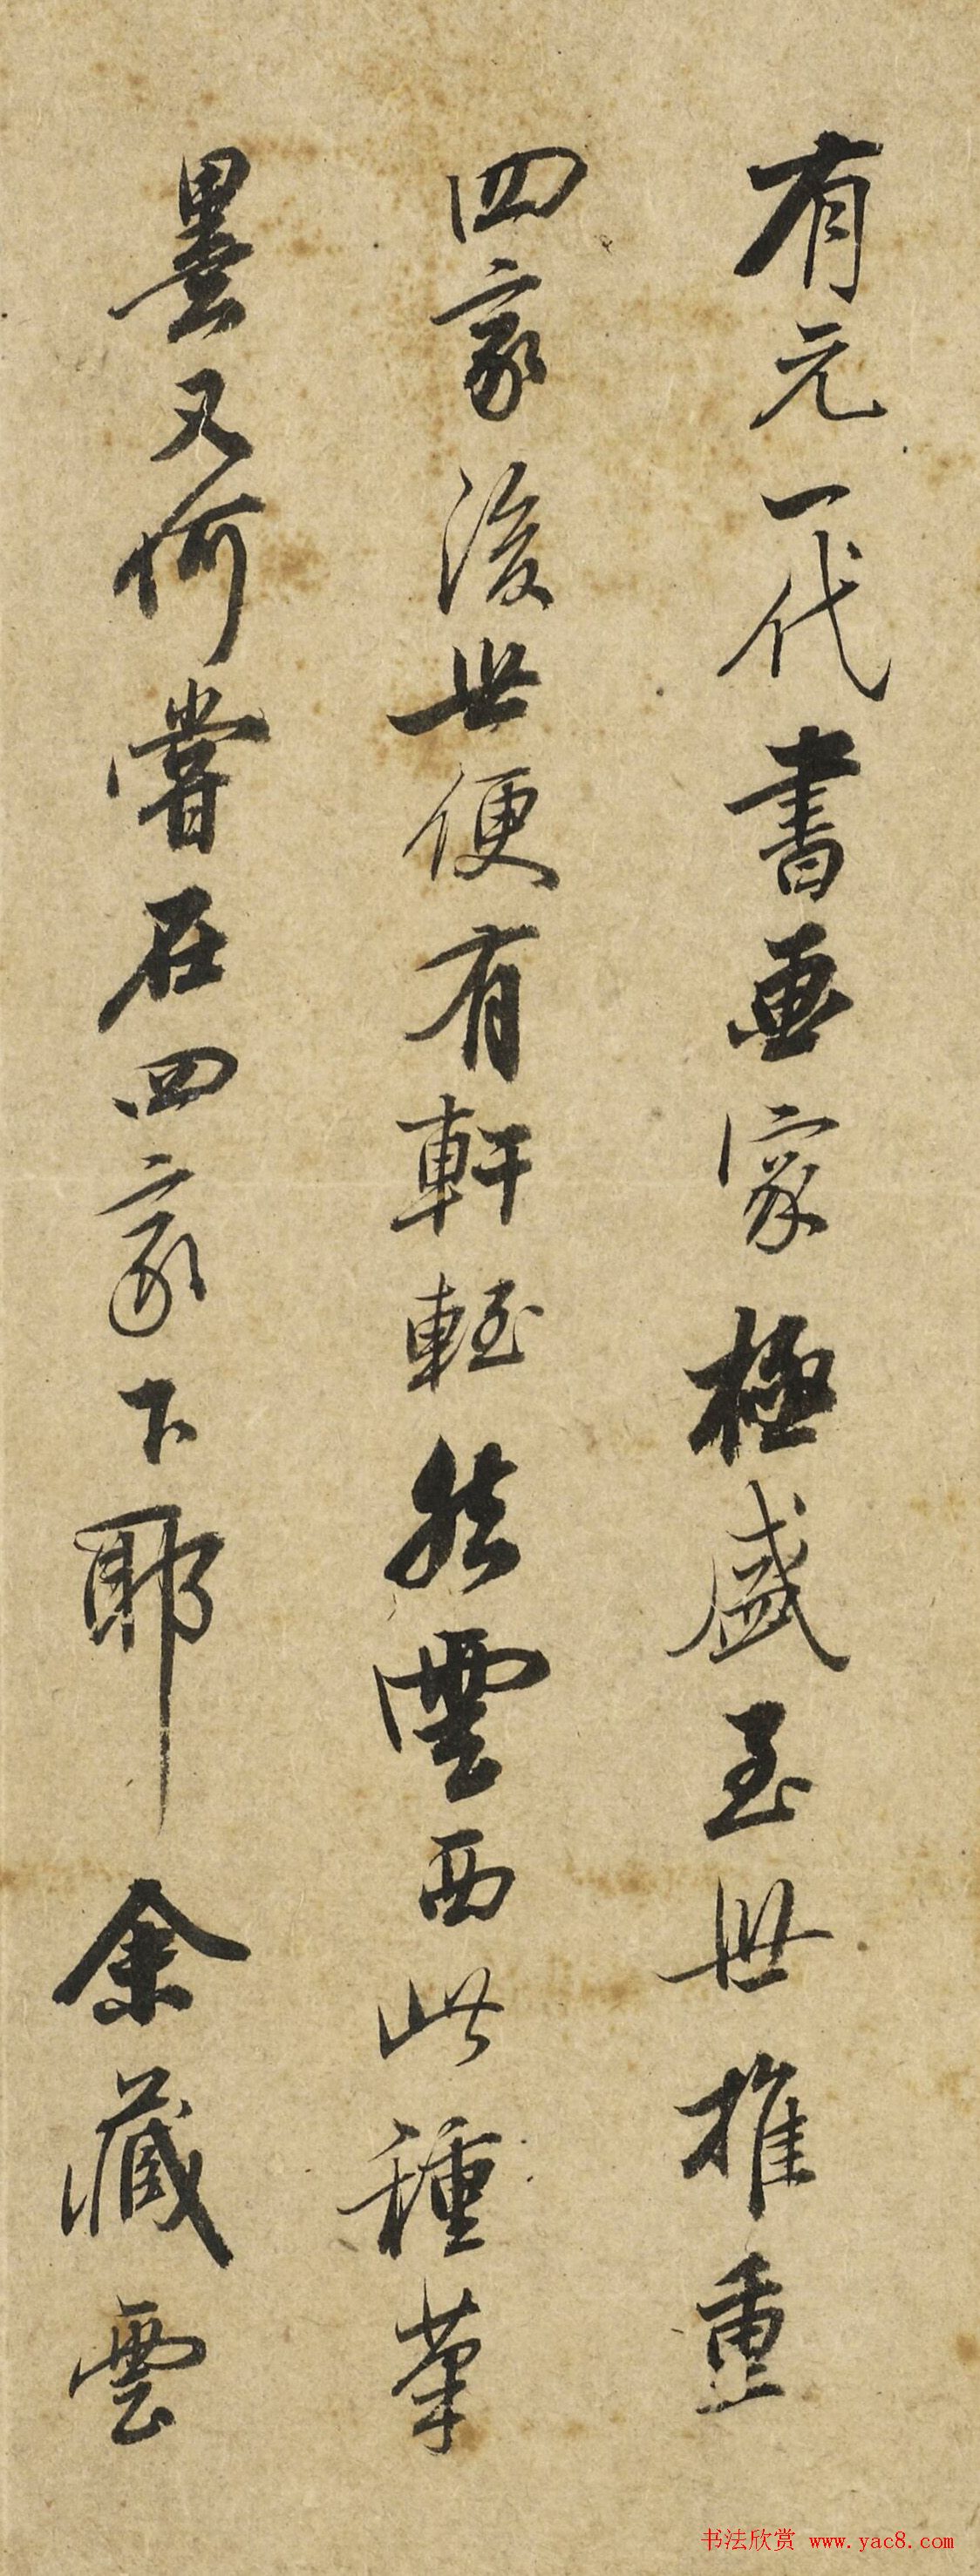 有元一代書畫家極盛至世推重
四家後世便有軒輊然雲西此種筆
墨又何嘗在四家下耶余藏雲
书法欣赏 www.yac8.com